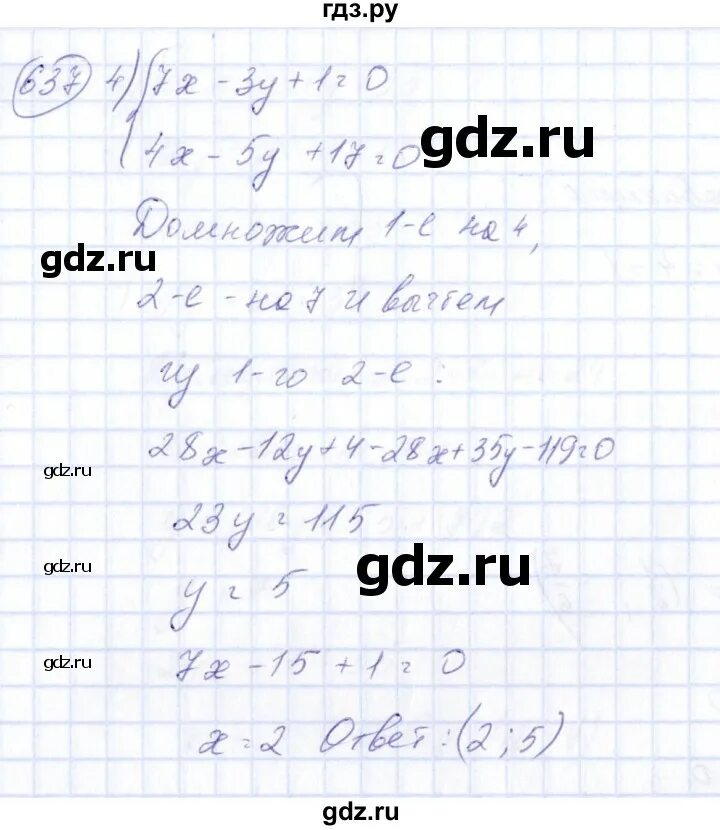 гдз.ру
637 4) { 7x - 3y + 1 = 0
4x - 5y + 17 = 0
gdz.ru
Домножим 1-е на 4,
gdz.ru
2-е - на 7 и вычтем
из 1-го 2-е :
28x - 12y + 4 - 28x + 35y - 119 = 0
gdz.ru
23y = 115
gdz.ru
gdz.ru
y = 5
7x - 15 + 1 = 0
gdz.ru
x = 2 Ответ: (2; 5)
gdz.ru